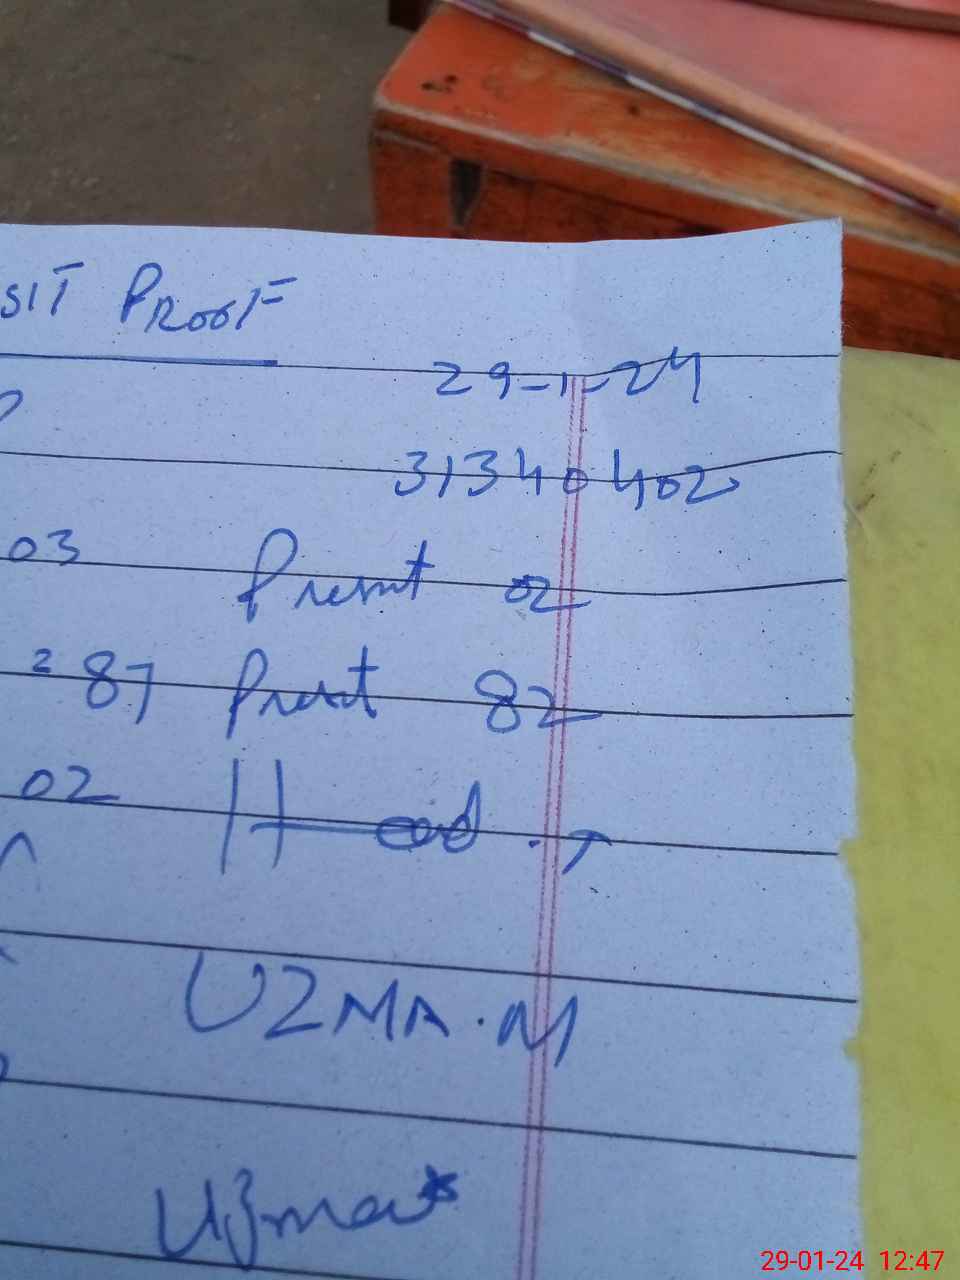 SIT PROOF
29-1-24
31340402
03 Present 02
287 Present 82
02 Head .T
UZMA.M
Uzma
29-01-24 12:47